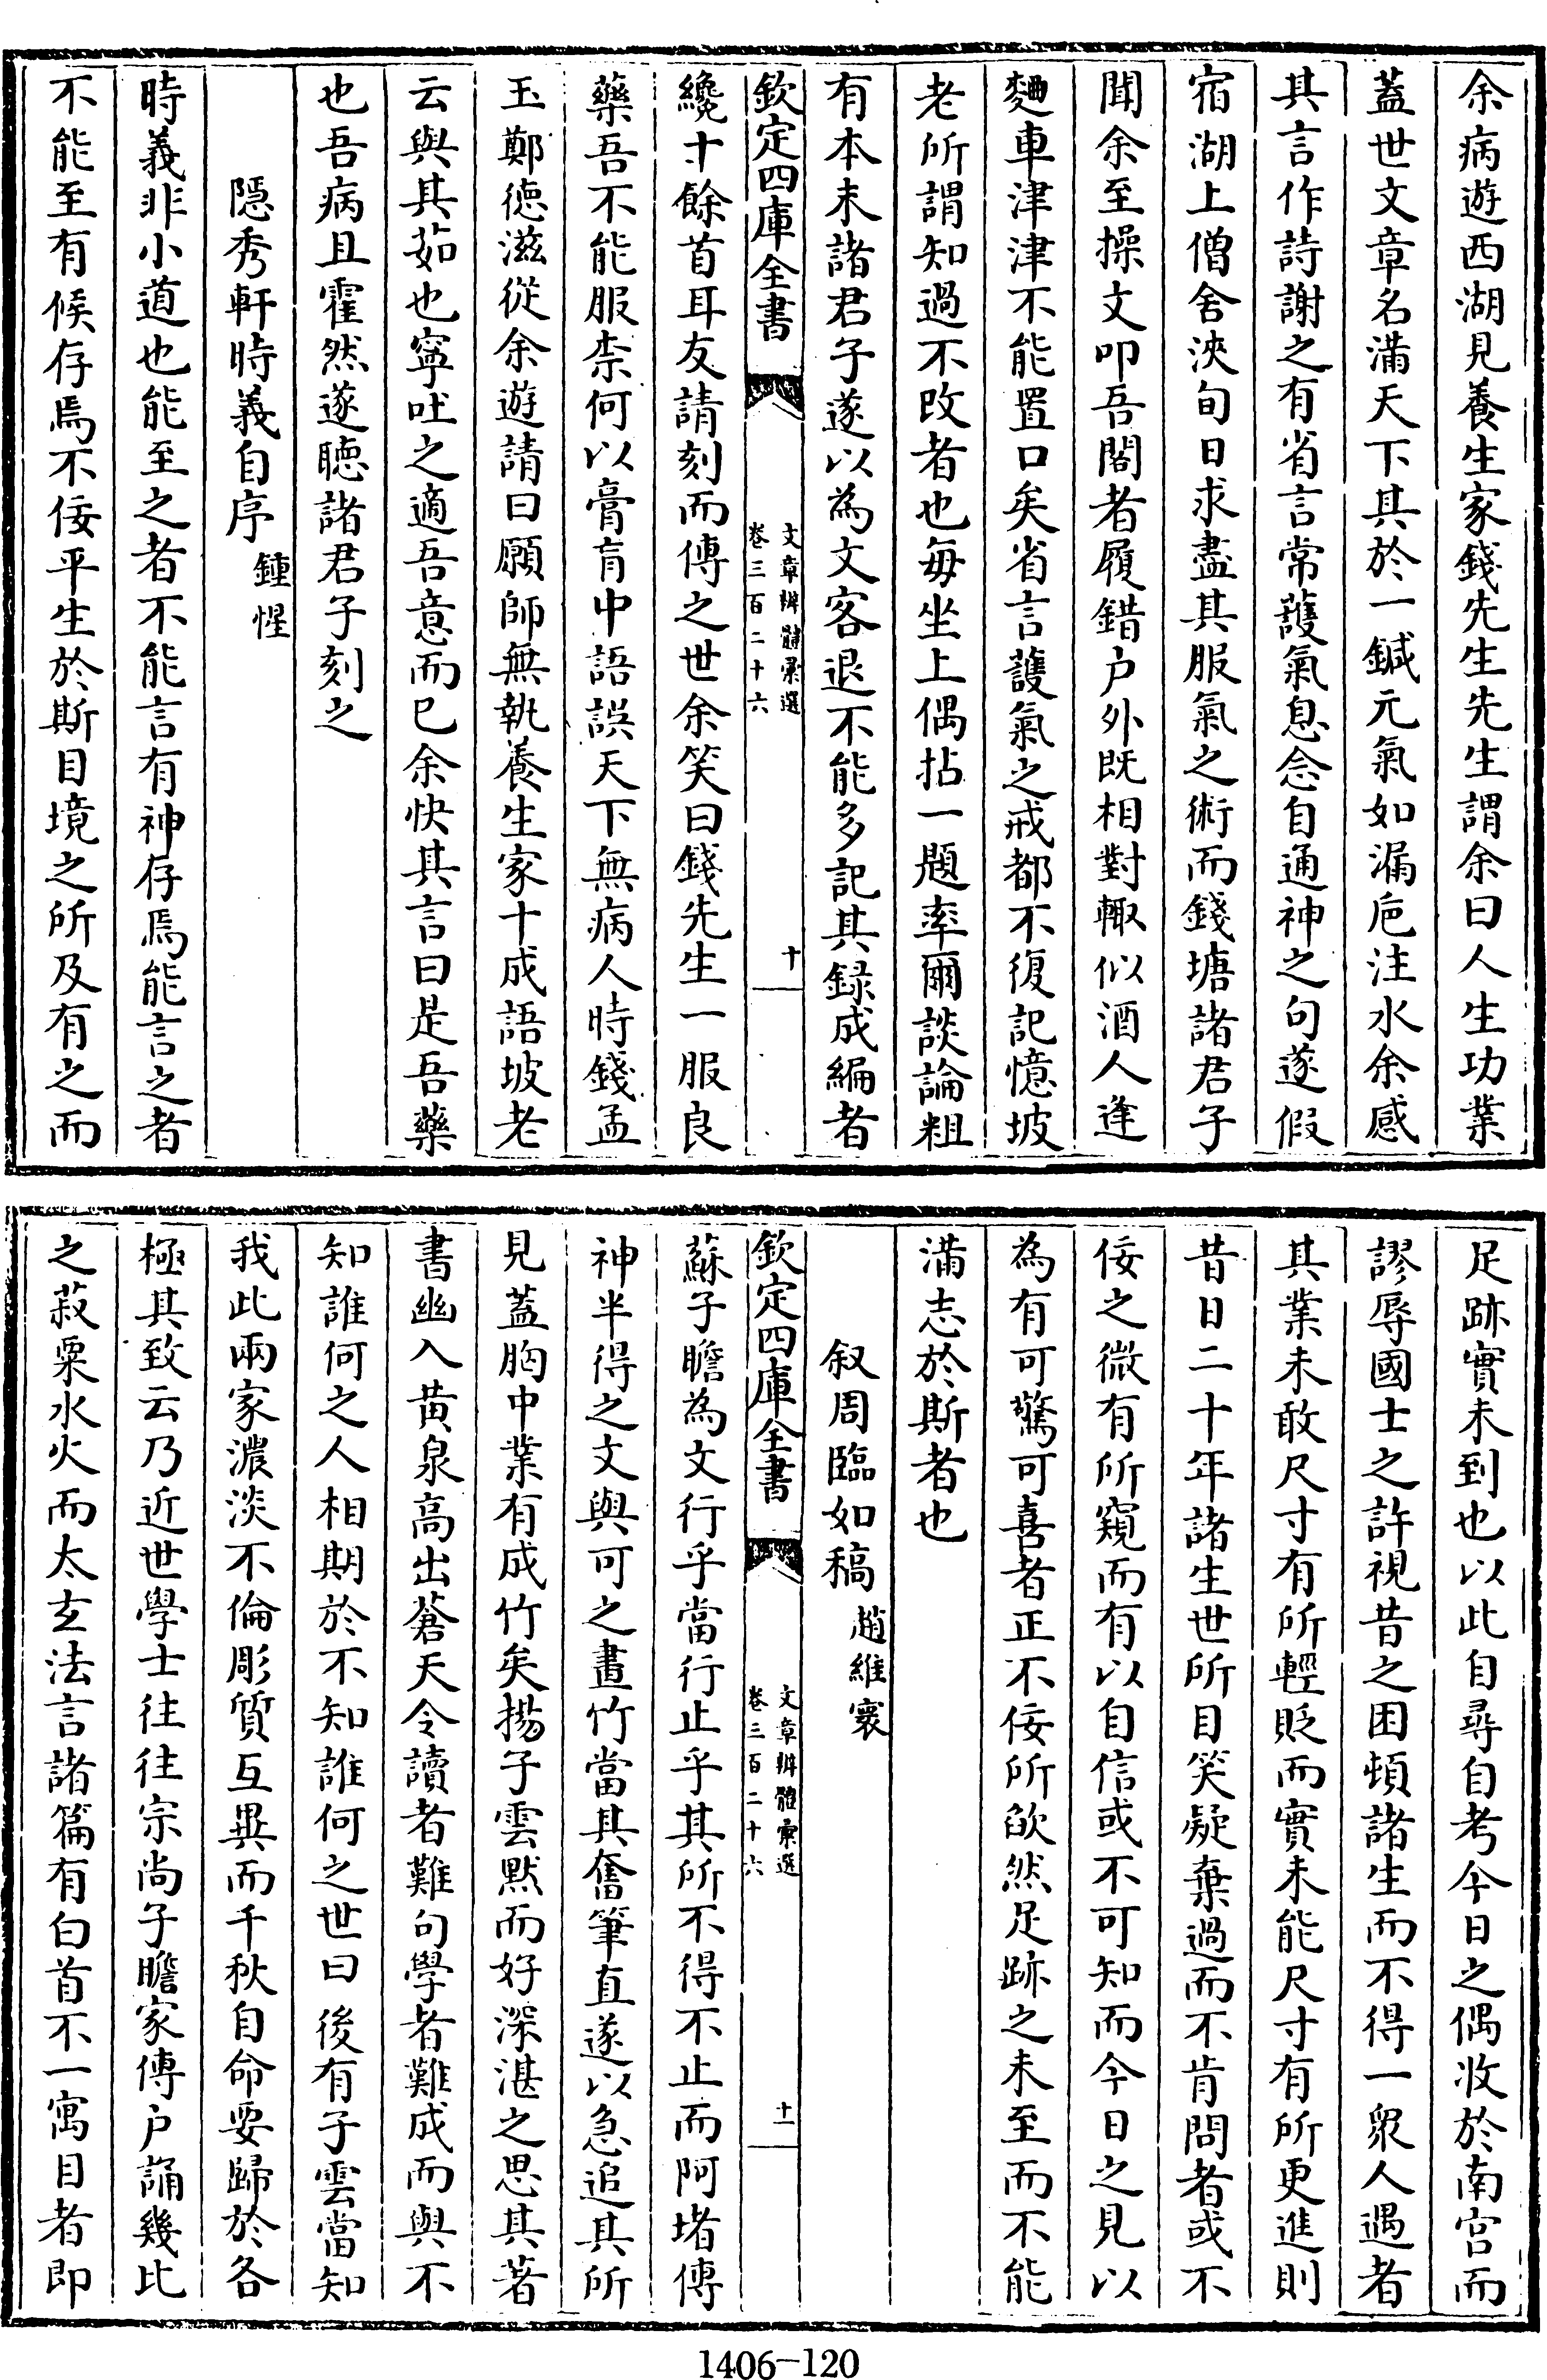 余病遊西湖見養生家錢先生先生謂余曰人生功業
蓋世文章名滿天下其於一鍼元氣如漏巵注水余感
其言作詩謝之有省言常䕶氣息念自通神之句遂假
宿湖上僧舍浹旬日求盡其服氣之術而錢塘諸君子
聞余至操文叩吾閣者履錯户外既相對輙似酒人逢
麯車津津不能置口矣省言䕶氣之戒都不復記憶坡
老所謂知過不改者也每坐上偶拈一題率爾談論粗
有本末諸君子遂以為文客退不能多記其録成編者
欽定四庫全書
文章辨體彚選
卷三百二十六
十
纔十餘首耳友請刻而傳之世余笑曰錢先生一服良
藥吾不能服柰何以膏肓中語誤天下無病人時錢孟
玉鄭徳滋從余遊請曰願師無執養生家十成語坡老
云與其茹也寧吐之適吾意而已余快其言曰是吾藥
也吾病且霍然遂聽諸君子刻之
隱秀軒時義自序
鍾惺
時義非小道也能至之者不能言有神存焉能言之者
不能至有候存焉不佞平生於斯目境之所及有之而
足跡實未到也以此自尋自考今日之偶收於南宫而
謬辱國士之許視昔之困頓諸生而不得一衆人遇者
其業未敢尺寸有所輕貶而實未能尺寸有所更進則
昔日二十年諸生世所目笑疑棄過而不肯問者或不
佞之微有所窺而有以自信或不可知而今日之見以
為有可驚可喜者正不佞所欿然足跡之未至而不能
滿志於斯者也
叙周臨如稿
趙維寰
欽定四庫全書
文章辨體彚選
卷三百二十六
十一
蘇子瞻為文行乎當行止乎其所不得不止而阿堵傳
神半得之文與可之畫竹當其奮筆直遂以急追其所
見蓋胸中業有成竹矣揚子雲默而好深湛之思其著
書幽入黄泉高出蒼天令讀者難句學者難成而與不
知誰何之人相期於不知誰何之世曰後有子雲當知
我此兩家濃淡不倫彫質互異而千秋自命要歸於各
極其致云乃近世學士往往宗尚子瞻家傳户誦幾比
之菽粟水火而太玄法言諸篇有白首不一寓目者即
1406-120